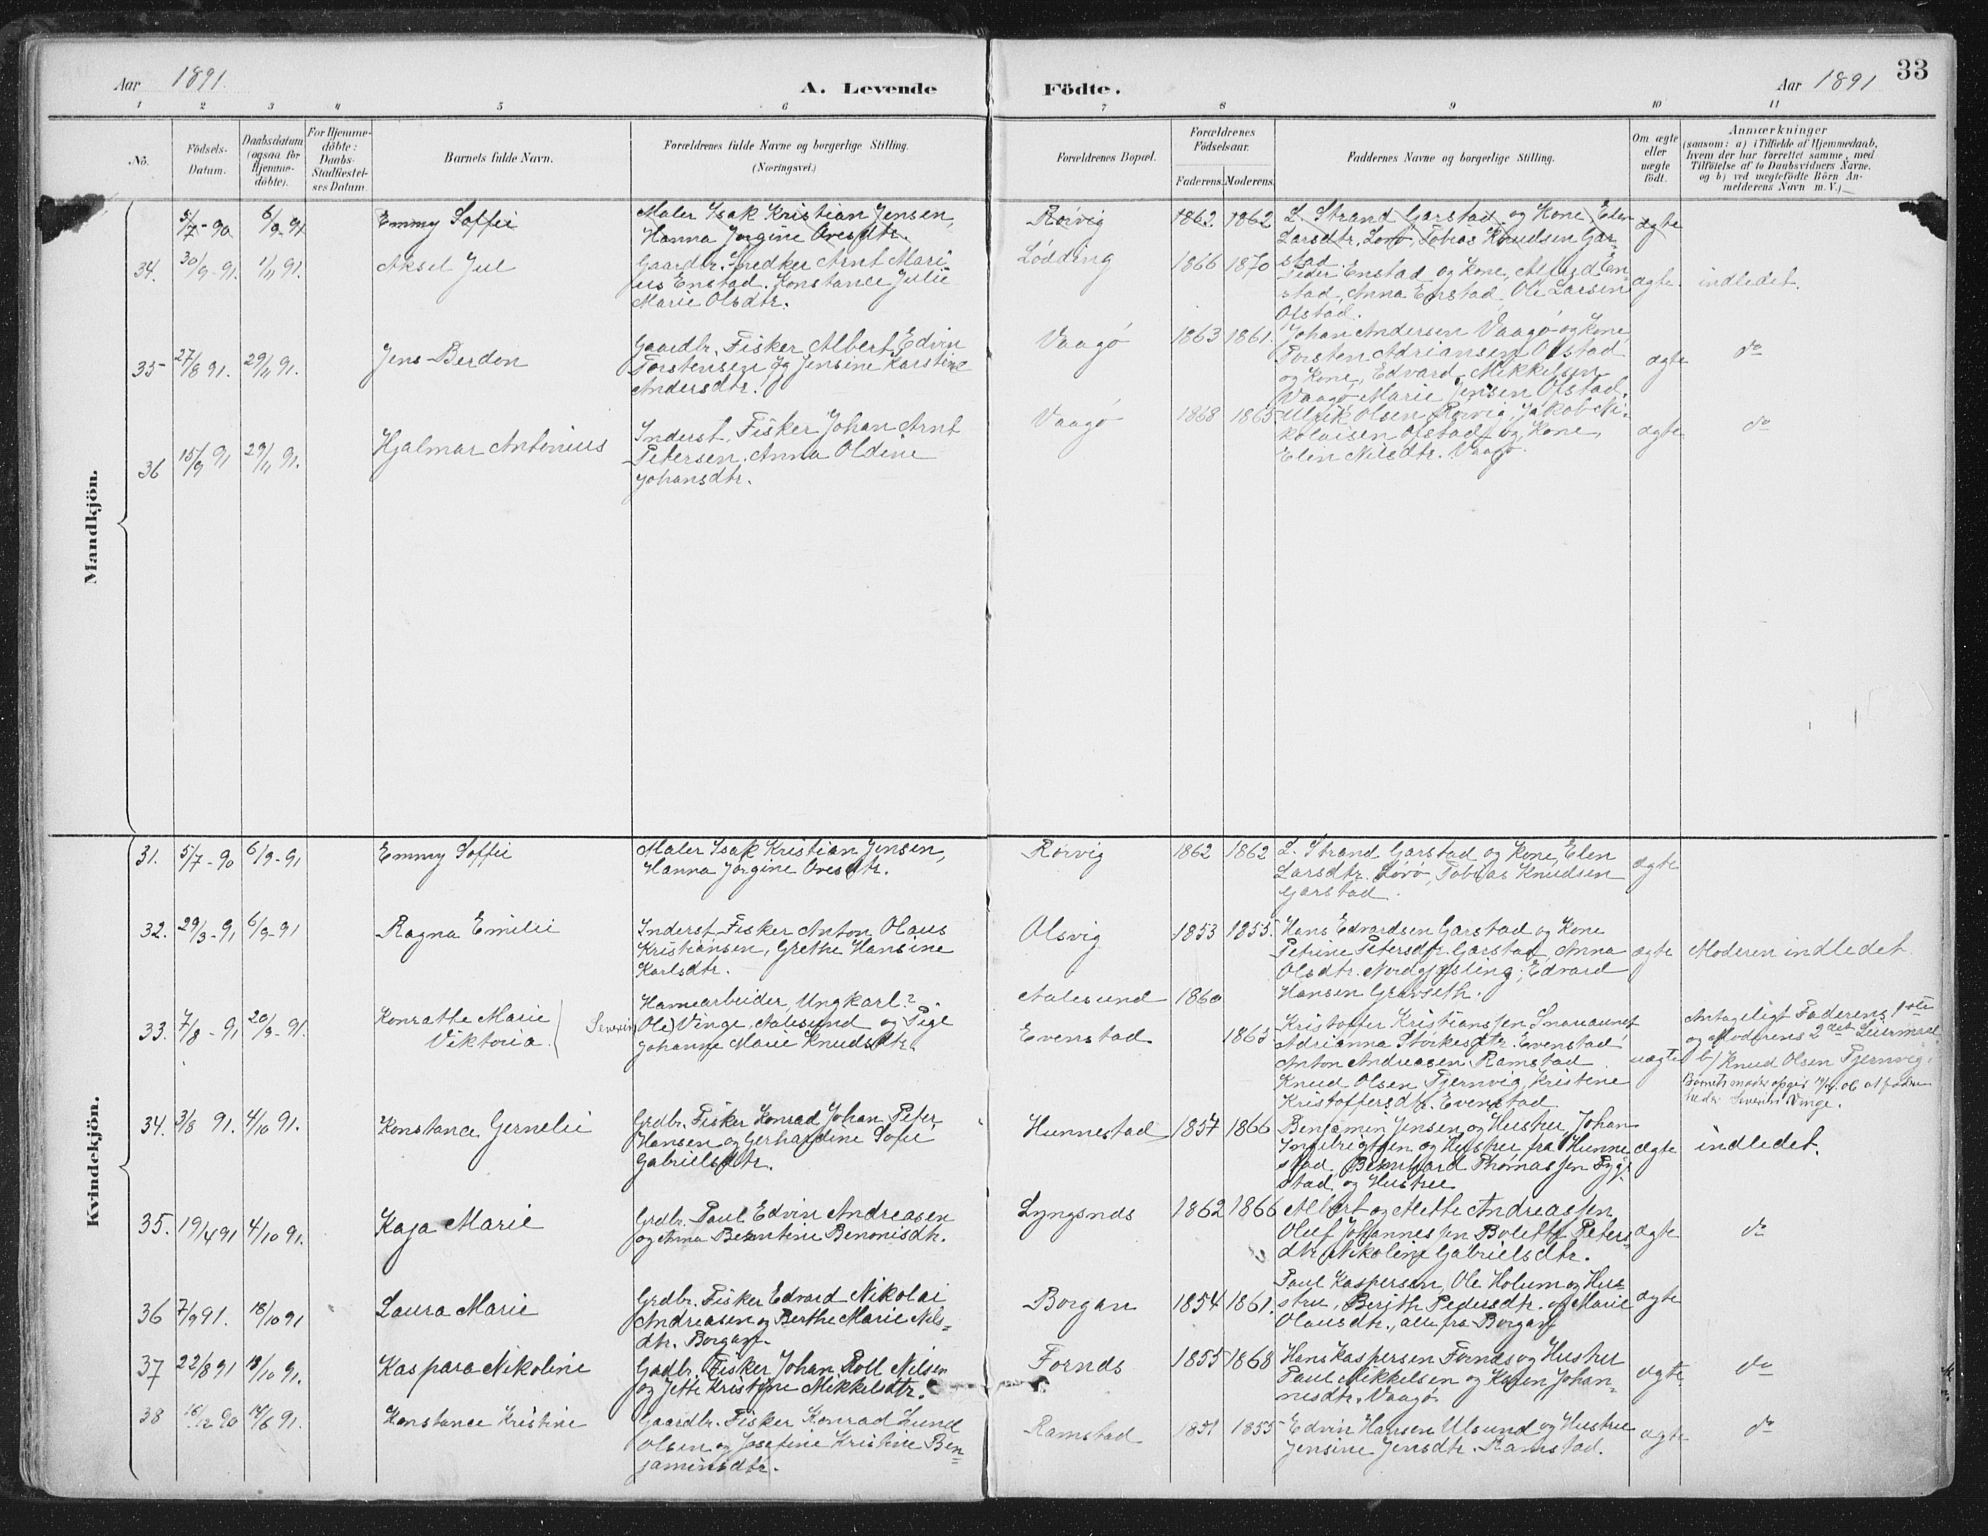 Aar 1891. A. Levende Födte. Aar 1891 33
1 2 3 4 5 6 7 8 9 10 11
No.
Födsels-Datum.
Daabsdatum (ogsaa for Hjemme-döbte).
For Hjemme-döbte: Daabs-Stadfæstel-ses Datum
Barnets fulde Navn.
Forældrenes fulde Navne og borgerlige Stilling.
(Næringsvei.)
Forældrenes Bopæl.
Forældrenes Födselsaar.
Faderens. Moderens.
Faddernes Navne og borgerlige Stilling.
Om ægte eller uægte födt.
Anmærkninger
(saasom: a) i Tilfælde af Hjemmedaab,
hvem der har forrettet samme, med
Tilföielse af to Daabsvidners Navne,
og b) ved uægtefödte Börn An-
melderens Navn m. V.)
Mandkjön.
5/7-90 6/9-91 Emmy Soffie
Maler Isak Kristian Jensen,
Hanna Jorgine Ovesdtr.
Rørvig 1862. 1862
L. Strand Garstad og Kone Elen
Larsdtr. Sørø, Tobias Knudsen Gar-
stad.
ægte
34. 30/9-91. 1/11 91. Aksel Jul
Gaardbr. Snedker Arnt Mari
us Enstad. Konstance Julie
Marie Olsdtr.
Lødding 1866 1870
Peder Enstad og Kone, Alfred En-
stad, Anna Enstad, Ole Larsen
Ofstad.
ægte. indledet.
35 27/8 91. 29/11 91. Jens Berdon
Gaardbr. Fisker Albert Edvin
Torstensen og Jensine Karstine
Andersdtr.
Vaagø 1863 1861.
Johan Andersen Vaagø og Kone,
Torsten Adriansen Ofstad
og Kone, Edvard Mikkelsen
Vaagø Marie Jensen Ofstad.
ægte do
36 15/9 91 29/11 91. Hjalmar Antonius
Inderst, Fisker Johan Arnt
Petersen. Anna Oldine
Johansdtr.
Vaagø 1868 1865
Ulrik Olsen Rørvig, Jakob Ni-
kolaisen Ofstad og Kone,
Elen Nilsdtr. Vaagø.
ægte do
Kvindekjön.
31. 5/7-90 6/9-91 Emmy Soffie
Maler Isak Kristian Jensen,
Hanna Jorgine Ovesdtr.
Rørvig 1862 1862
L. Strand Garstad og Kone, Elen
Larsdtr. Sørø, Tobias Knudsen
Garstad.
ægte
32. 29/3-91 6/9-91 Ragna Emilie
Inderst Fisker Anton Olaus
Kristiansen, Grethe Hansine
Karlsdtr.
Olsvig 1853 1855.
Hans Edvardsen Garstad og Kone
Petrine Petersdtr. Garstad, Anna
Olsdtr. Nordgjesling, Edvard
Hansen Gravseth.
ægte Moderen indledet
33. 7/8-91 20/9-91. Konratte Marie
Viktoria
Havnearbeider, Ungkarl?
Severin Ole) Vinge, Aalesund og Pige
Johanne Marie Knudsdtr.
Aalesund 1860
Evenstad 1863
Kristoffer Kristianssen
Adrianna Størkesdtr. Evenstad
Anton Andreasen Ramstad
Knud Olsen Tjernvig, Kristine
Kristoffersdtr. Evenstad
uægte
Antageligt Faderens 1ste
og Moderens 2det Leiermaal.
b) Knud Olsen Tjernvig.
Severin Vinge.
34. 3/8 91. 4/10 91. Konstance Gernelie
Grdbr. Fisker Konrad Johan Peter
Hansen og Gerhardine Sofie
Gabrielsdtr.
Hunnestad 1857 1866
Benjamin Jensen og Hustru, Johan
Ingebrigtsen og Hustru fra Hunne
stad. Bernhard Thomassen
stad og Hustru
ægte indledet.
35. 19/4 91 4/10 91. Kaja Marie
Grdbr. Paul Edvin Andreasen
og Anna Berntine Benonisdtr.
Lyngsnæs 1862 1866
Albert og Mette Andreassen
Oluf Johannessen Bolette Peters-
dtr. Nikoline Gabrielsdtr.
ægte do
36 7/9 91. 18/10 91 Laura Marie
Grdbr. Fisker Edvard Nikolai
Andreasen og Berthe Marie Nils-
dtr. Borgan.
Borgan 1854 1861.
Paul Kaspersen, Ole Holum og Hus
stru, Berith Pedersdtr. og Marie
Olausdtr., alle fra Borgan
ægte
37 22/8 91 18/10 91. Kaspara Nikoline
Gadbr. Fisker Johan Roll Nilsen
og Jette Kristine Mikkelsdtr.
Fornæs 1855 1868
Hans Kaspersen Fornæs og Hustru
Paul Mikkelsen og Karen Johan-
nesdtr. Vaagø.
ægte. do
38 16/12 90 14/6 91. Konstance Kristine
Gaardbr. Fisker Konrad Lund
Olsen og Josefine Kristine Ben-
jaminsdtr.
Ramstad 1851 1855
Edvin Hansen Ulsund og Hustru
Jensine Jensdtr. Ramstad.
ægte do